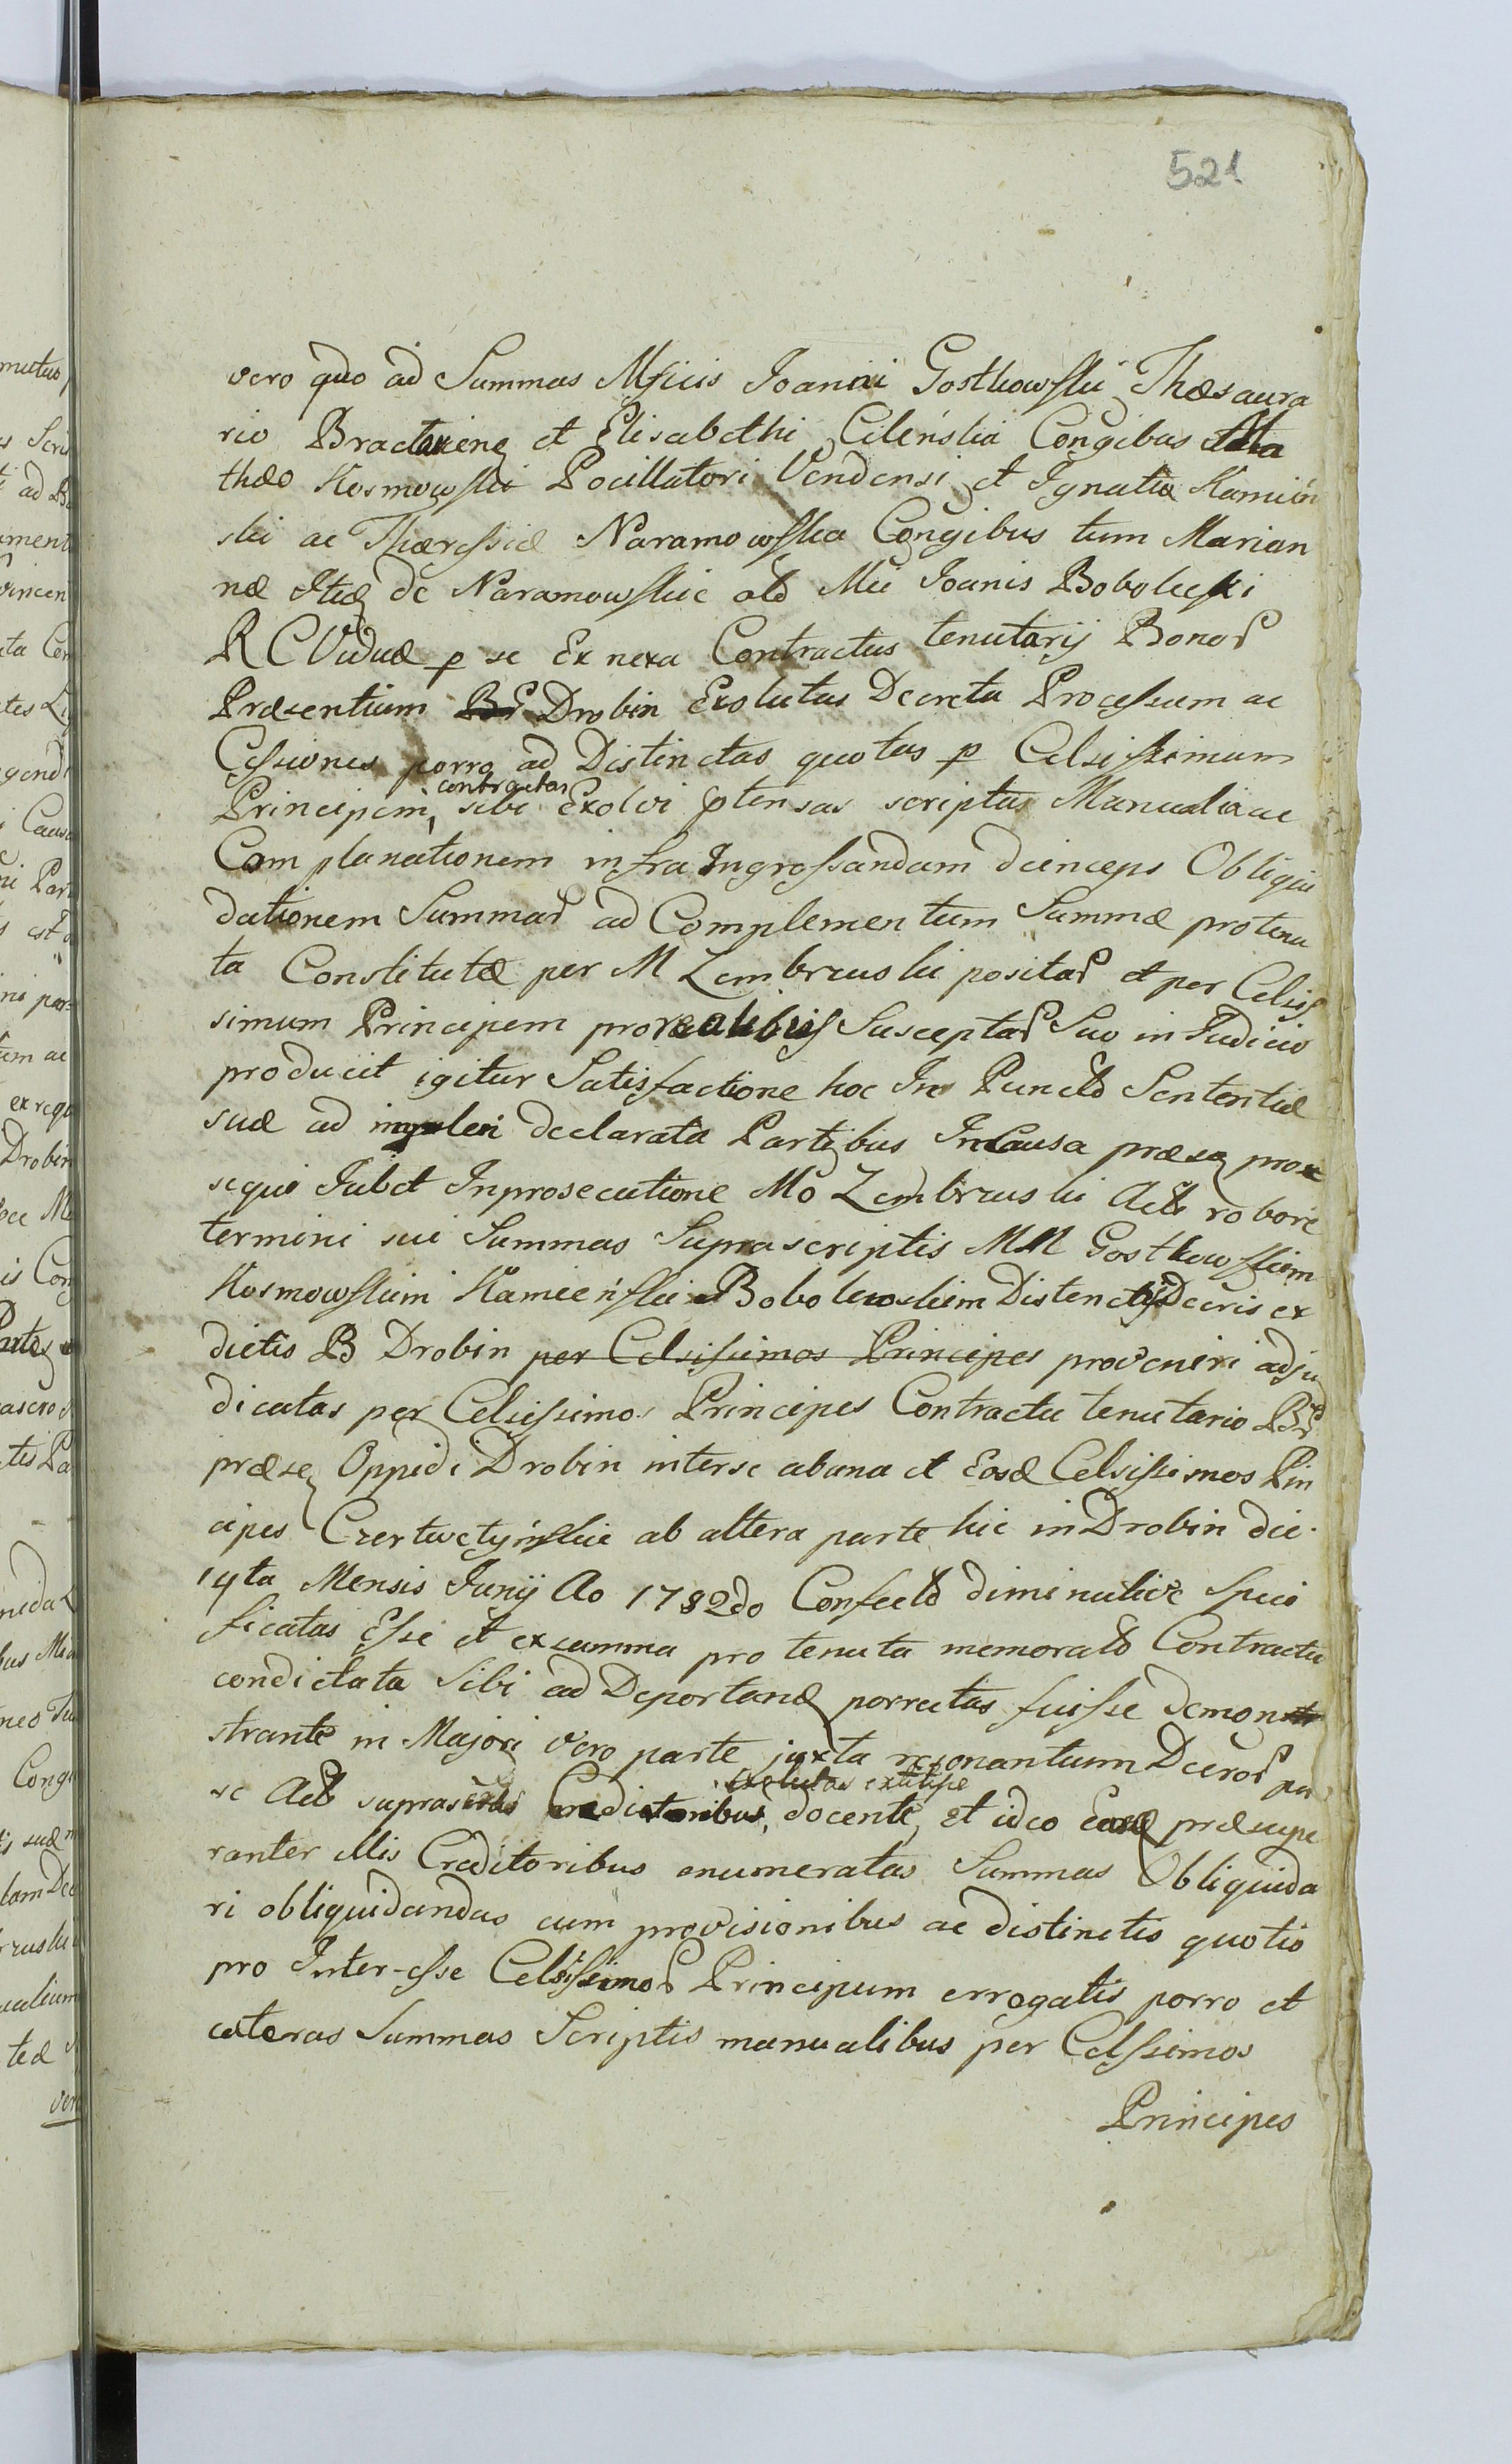 521
vero quo ad Summas Mficis Joanni Gostkowski Thesaura
rio Braclavien et Elisabethi Cilenska Congibus Ma
thæo Kosmowski Pocillatori Vendensi et Ignatio Kamień
ski ac Thæressiæ Naramowska Congibus tum Marian
næ Itid de Naramowskie olo Mci Joanis Bobolecki
R C Viduæ p se Ex nexu Contractus tenutarij Bonor
Præsentium Br Drobin Exolutas Decreta Processum ac
Cessiones porro ad Distinctas quotas p Celsissimum
Principem contractas sibi Exolvi ptensas scriptas Manualia ac
Complanationem infra Ingrossandam deinceps Obliqui
dationem Summar ad Complementum Summæ pro tenu
ta Constitutæ per M Zembrzuski positar et per Celsis
simum Principem pro realibus Susceptar Suo in Judicio
producit igitur Satisfactione hoc In Puncto Sententiæ
suæ ad impleri declarata Partibus In Causa præsen
sequi Jubet In prosecutione Mo Zembrzuski Acto robore
termini sui Summas Suprascriptis MM Gostkowskim
Kosmowskim Kamieński Boboleckim Distinctis Decris ex
dictis B Drobin per Celsissimos Principes proveniri adju
dicatas per Celsissimos Principes Contractu tenutario Br
præsen Oppidi Drobin inter se ab una et Eosd Celsissimos Pin
cipes Czertwetyńskie ab altera parte hic in Drobin die
14ta Mensis Junij Ao 1782do Confecto diminutive Speci
ficatas Esse et ex summa pro tenuta memorato Contractu
condictata Sibi ad Deportand porrectas fuisse demon
strante in Majori vero parte juxta resonantium Decror per
se Acto suprascriptis Creditoribus, exolutas extitisse docente, et ideo easd præsupe
ranter illis Creditoribus enumeratas Summas Obliquida
ri obliquidandas cum provisionibus ac distinctis quotis
pro Inter-esse Celsissimor Principum errogatis porro et
cæteras Summas Scriptis manualibus per Celssimos
Principes